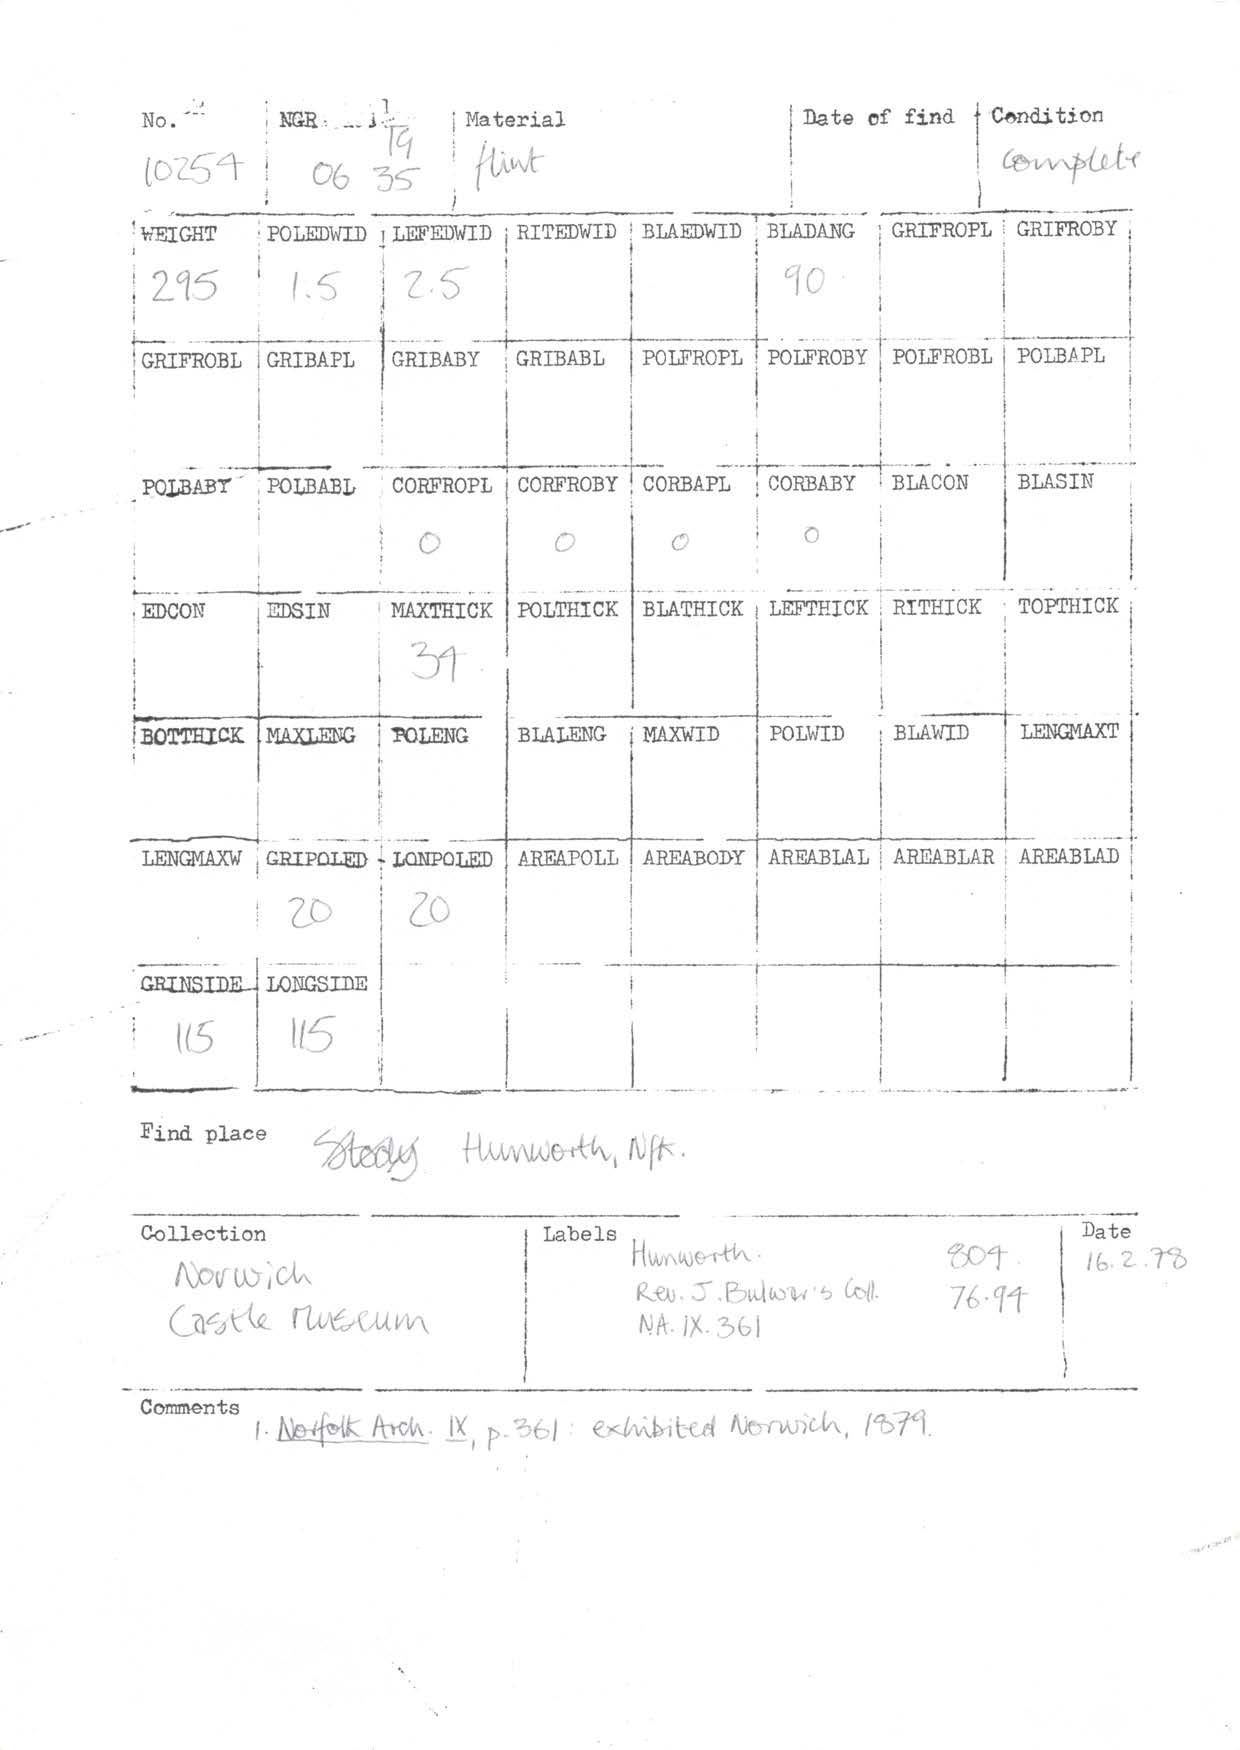 No. NGR Material Date of find Condition
TG
10254 06 35 flint complete
WEIGHT POLEDWID LEFEDWID RITEDWID BLAEDWID BLADANG GRIFROPL GRIFROBY
295 1.5 2.5 90
GRIFROBL GRIBAPL GRIBABY GRIBABL POLFROPL POLFROBY POLFROBL POLBAPL
POLBABY POLBABL CORFROPL CORFROBY CORBAPL CORBABY BLACON BLASIN
0 0 0 0
EDCON EDSIN MAXTHICK POLTHICK BLATHICK LEFTHICK RITHICK TOPTHICK
34
BOTTHICK MAXLENG POLENG BLALENG MAXWID POLWID BLAWID LENGMAXT
LENGMAXW GRIPOLED LONPOLED AREAPOLL AREABODY AREABLAL AREABLAR AREABLAD
20 20
GRINSIDE LONGSIDE
115 115
Find place Stody Hunworth, Nfk.
Collection Labels Date
Hunworth. 804. 16.2.78
Norwich Rev. J. Bulwer's Coll. 76.94
Castle Museum NA. IX. 361
Comments
1. Norfolk Arch. IX, p.361: exhibited Norwich, 1879.